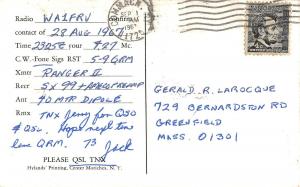 Radio WA1FRV Confirming
contact of 28 AUG 1967
Time 2325Z 727 Mc.
C.W.-Fone Sigs RST 5-9 QRM
Xmtr RANGER II
Recr 5X 99 + PREAMP
Ant 40 MTR DIPOLE
Rmx TNX Jerry for QSO
& QSL. Hope next time
less QRM. 73 Jack
PLEASE QSL TNX
Hylands' Printing, Center Moriches, N. Y.
SEP 1
1967
GERALD R. LAROCQUE
729 BERNARDSTON RD
GREENFIELD
MASS. 01301